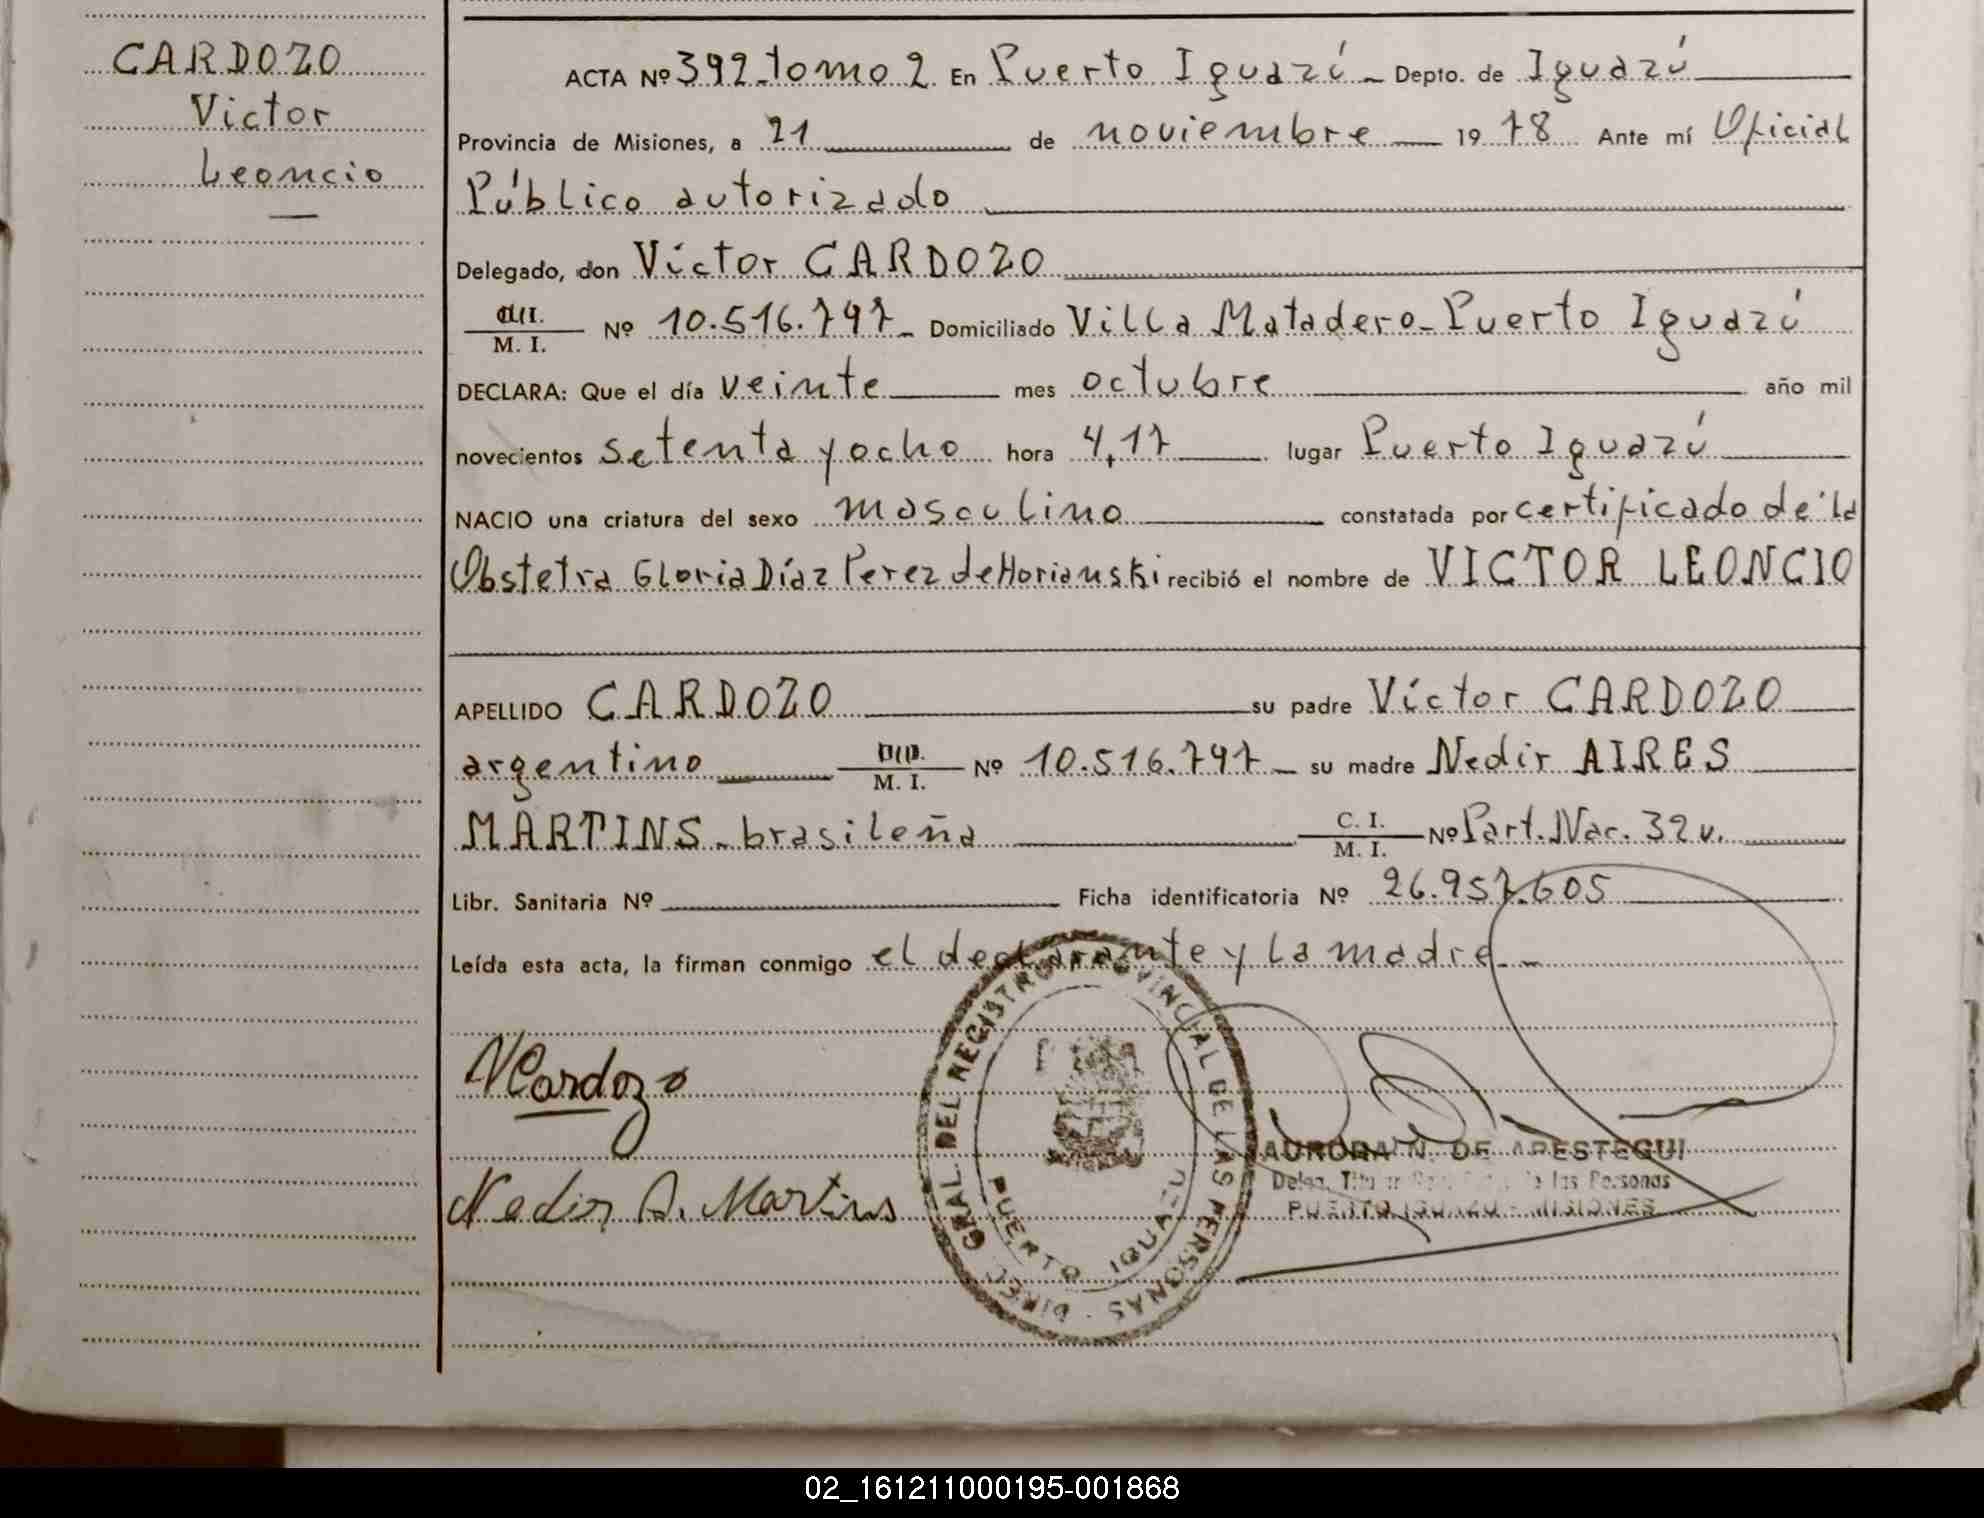 CARDOZO
Victor
Leoncio
ACTA Nº 392 tomo 2 En Puerto Iguazú Depto. de Iguazú
Provincia de Misiones, a 21 de noviembre 1978 Ante mí Oficial
Público autorizado
Delegado, don Víctor CARDOZO
M. I. Nº 10.516.797 Domiciliado Villa Matadero-Puerto Iguazú
DECLARA: Que el día veinte mes octubre año mil
novecientos setenta y ocho hora 4,17 lugar Puerto Iguazú
NACIO una criatura del sexo masculino constatada por certificado de la
Obstetra Gloria Díaz Perez de Horianski recibió el nombre de VICTOR LEONCIO
APELLIDO CARDOZO su padre Víctor CARDOZO
argentino M. I. Nº 10.516.797 su madre Nedir AIRES
MARTINS - brasileña C. I. M. I. Nº Part. Nac. 32 v.
Libr. Sanitaria Nº Ficha identificatoria Nº 26.957.605
Leída esta acta, la firman conmigo el declarante y la madre
VCardozo
Nedir A. Martins
DIREC. GRAL DEL REGISTRO PROVINCIAL DE LAS PERSONAS
PUERTO IGUAZU
AURORA N. DE ARESTEGUI
de las Personas
PUERTO IGUAZU - MISIONES
02_161211000195-001868